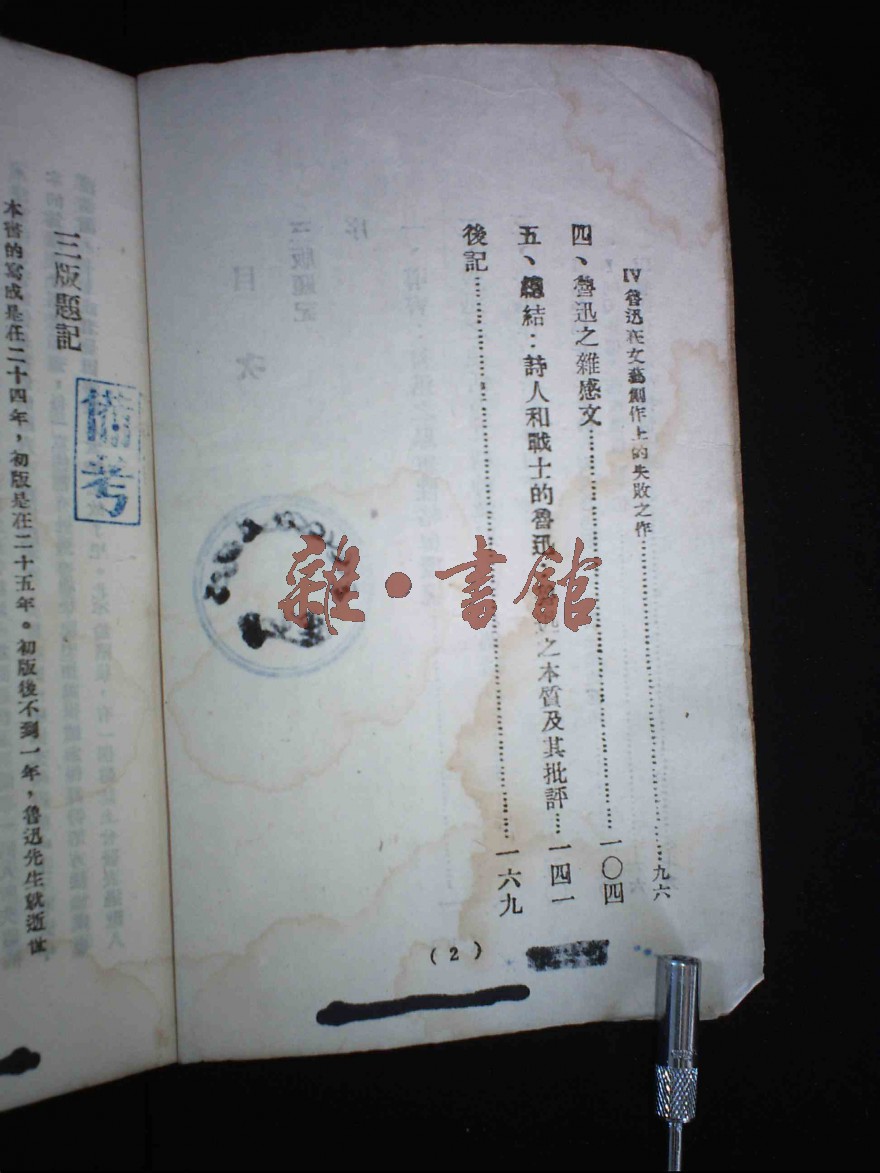 IV魯迅在文藝創作上的失敗之作……九六
四、魯迅之雜感文……一〇四
五、總結：詩人和戰士的魯迅：之本質及其批評……一四一
後記……一六九
(2)
三版題記
本書的寫成是在二十四年，初版是在二十五年。初版後不到一年，魯迅先生就逝世
備考
雜·書館